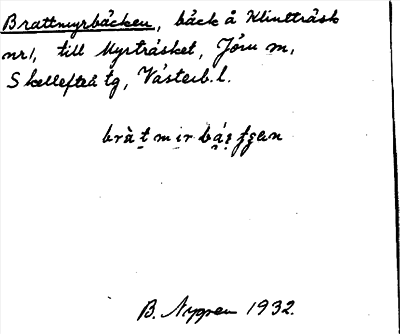 Brattmyrbäcken, bäck å Klintträsk
nr 1, till Myrträsket, Jörn m,
Skellefteå tg, Västerb. l.
B. Nygren 1932.